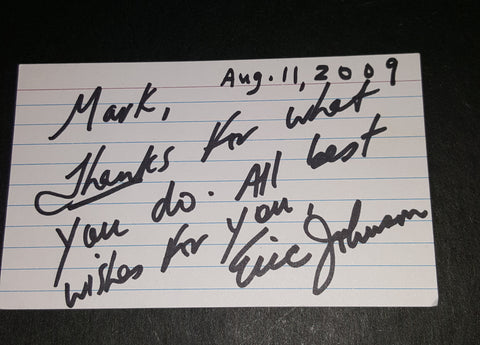 Aug. 11, 2009
Mark,
Thanks for what
you do. All best
wishes for you,
Eric Johnson